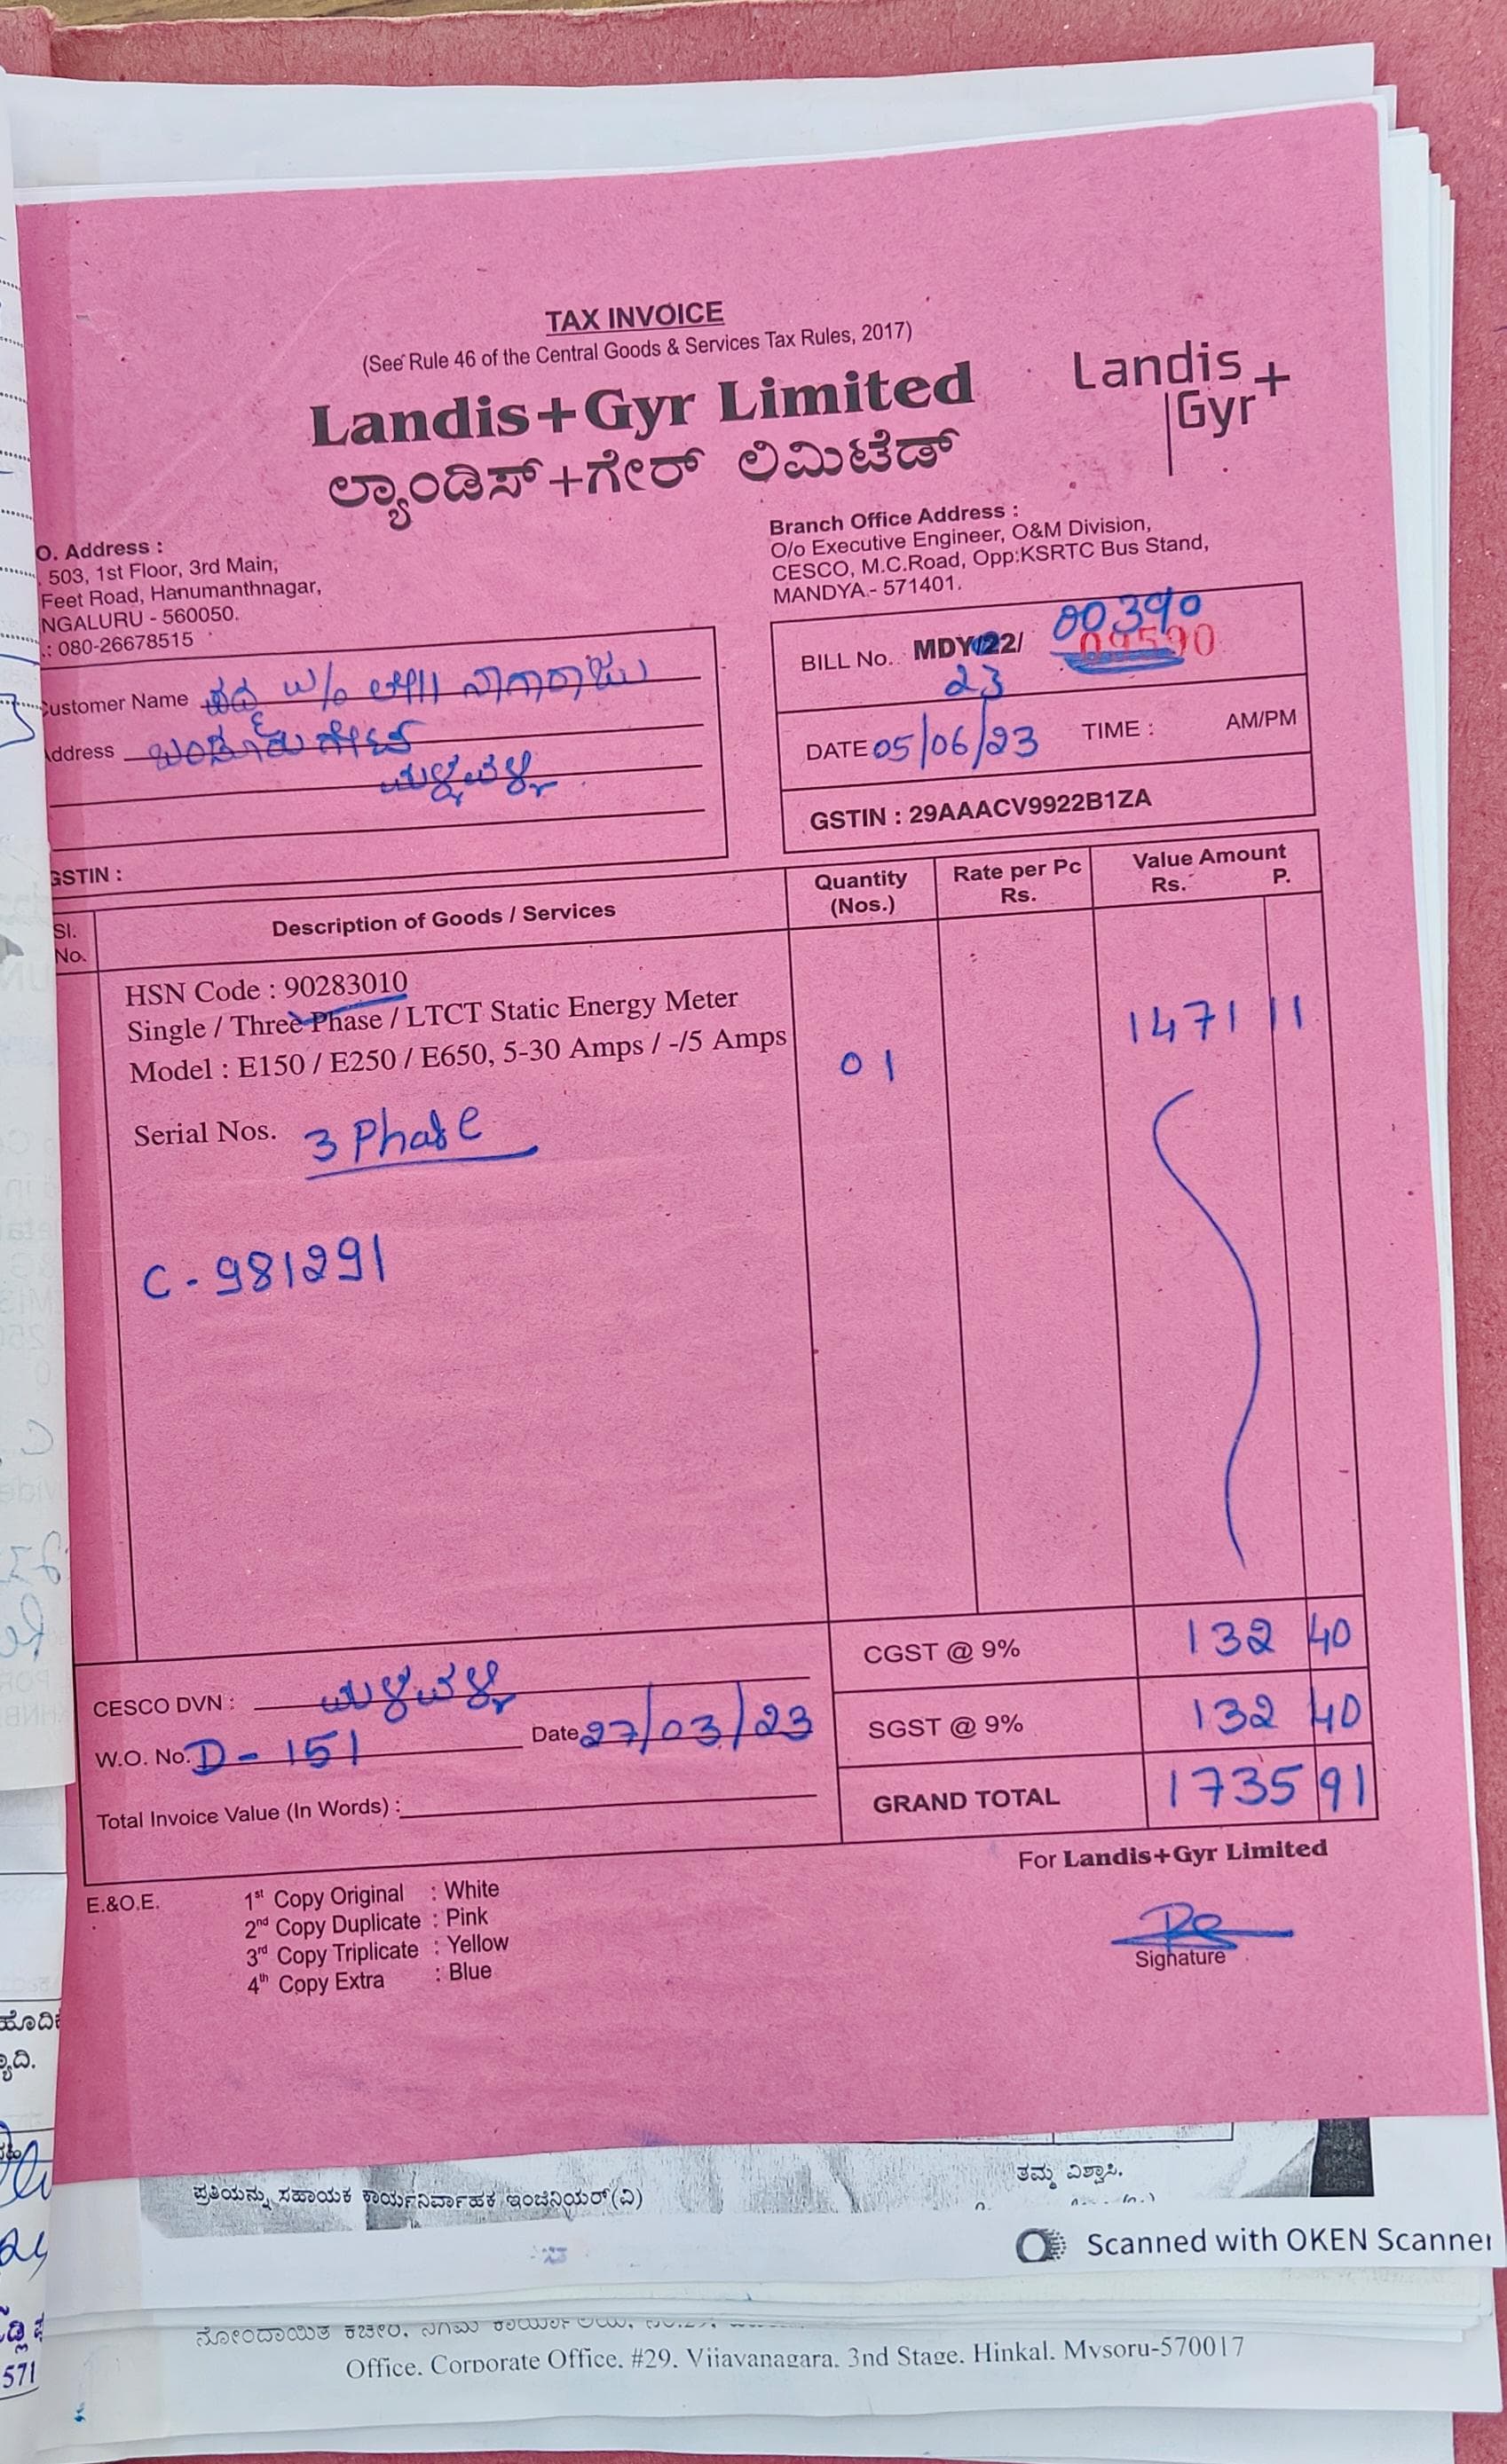 TAX INVOICE
(See Rule 46 of the Central Goods & Services Tax Rules, 2017)
Landis+Gyr Limited
ಲ್ಯಾಂಡಿಸ್+ಗೇರ್ ಲಿಮಿಟೆಡ್
Landis
Gyr+
O. Address :
503, 1st Floor, 3rd Main,
Feet Road, Hanumanthnagar,
NGALURU - 560050.
.: 080-26678515
Branch Office Address :
O/o Executive Engineer, O&M Division,
CESCO, M.C.Road, Opp:KSRTC Bus Stand,
MANDYA - 571401.
Customer Name W/o ನಾಗರಾಜು
Address
ಮಳ್ಳವಳ್ಳಿ
GSTIN :
BILL No. MDY/22/ 00390
23
DATE 05/06/23 TIME : AM/PM
GSTIN : 29AAACV9922B1ZA
Sl. No. Description of Goods / Services Quantity (Nos.) Rate per Pc Rs. Value Amount Rs. P.
HSN Code : 90283010
Single / Three Phase / LTCT Static Energy Meter
Model : E150 / E250 / E650, 5-30 Amps / -/5 Amps
01 1471 11
Serial Nos. 3 Phase
C - 981291
CGST @ 9% 132 40
SGST @ 9% 132 40
GRAND TOTAL 1735 91
CESCO DVN : ಮಳ್ಳವಳ್ಳಿ
W.O. No. D - 151 Date 27/03/23
Total Invoice Value (In Words) :
For Landis+Gyr Limited
Signature
E.&O.E.
1st Copy Original : White
2nd Copy Duplicate : Pink
3rd Copy Triplicate : Yellow
4th Copy Extra : Blue
ತಮ್ಮ ವಿಶ್ವಾಸಿ,
ಪ್ರತಿಯನ್ನು ಸಹಾಯಕ ಕಾರ್ಯನಿರ್ವಾಹಕ ಇಂಜಿನಿಯರ್(ವಿ)
Scanned with OKEN Scanner
Office, Corporate Office, #29, Vijayanagara, 3nd Stage, Hinkal, Mysoru-570017
571